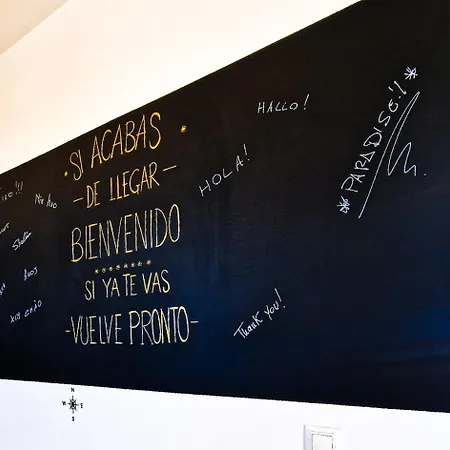 SI ACABAS
- DE LLEGAR -
BIENVENIDO
SI YA TE VAS
- VUELVE PRONTO -
HALLO!
HOLA!
PARADISO!!
THANK YOU!
XIN CHÀO
N
W E
S